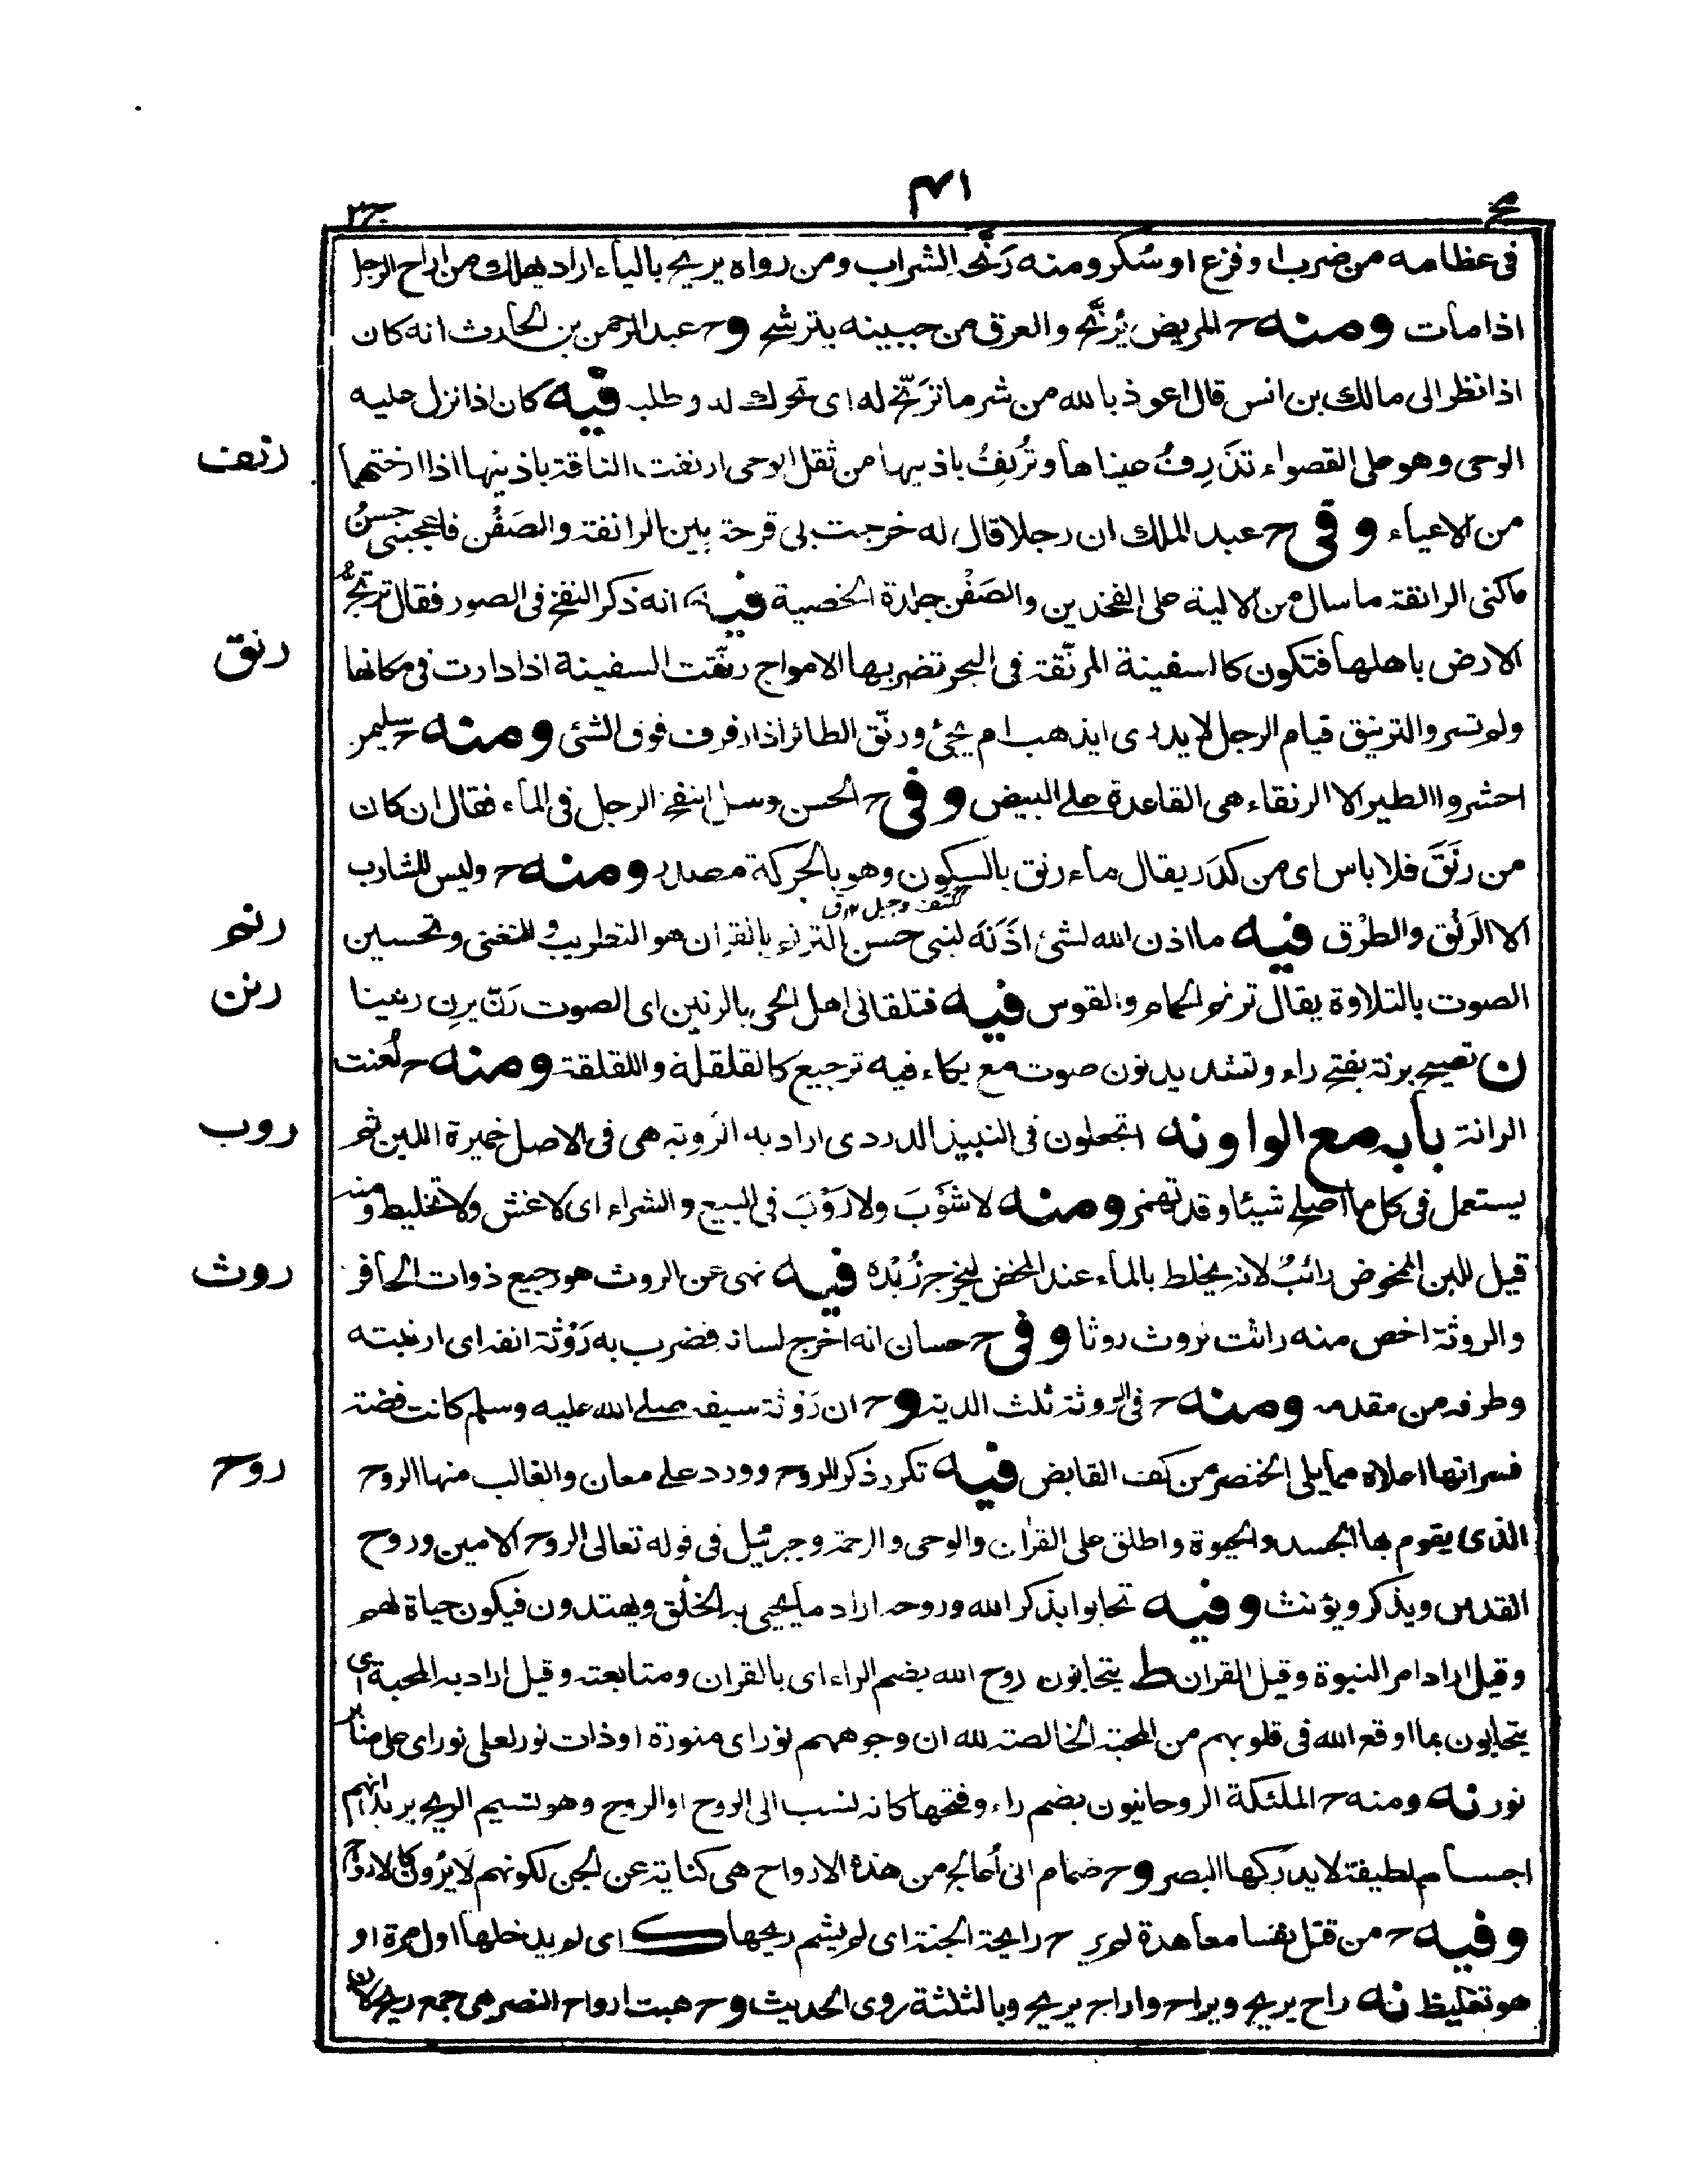 ٤١
ج٢
في عظامه من ضرب او فزع او سُكر ومنه رَنَّحه الشراب ومن رواه يريح بالياء اراد يهلك من اراح الرجل
اذا مات ومنه ح المريض يُرنَّح والعرق من جبينه يترشح وح عبد الرحمن بن الحارث انه كان
اذا نظر الى مالك بن انس قال اعوذ بالله من شر ما ترَنّح له اى تحرك له وطلبه فيه كان اذا نزل عليه
رنف
الوحى وهو على القصواء تذَرِفُ عيناها وتُرنِفُ باذنيها من ثقل الوحى ارنفت الناقة باذنيها اذا ارختهما
من الاعياء وفى ح عبد الملك ان رجلا قال له خرجت بى قرحة بين الرانفة والصَفَن فاعجبنى حسنُ
ما كنى الرانفة ما سال من الالية على الفخذين والصَفَن جلدة الخصية فيه انه ذكر النفخ فى الصور فقال ترتجُّ
رنق
الارض باهلها فتكون كالسفينة المرنّقة فى البحر تضربها الامواج رنّقت السفينة اذا دارت فى مكانها
ولم تسر والترنيق قيام الرجل لا يدرى ايذهب ام يجئ ورنّق الطائر اذا رفرف فوق الشئ ومنه ح سليمن
احشروا الطير الا الرنقاء هى القاعدة على البيض وفى ح الحسن وسئل اينفخ الرجل فى الماء فقال ان كان
من رنَقَ فلا باس اى من كدَر يقال ماء رنق بالسكون وهو بالحركة مصدر ومنه ح وليس للشارب
رنم
الا الرَنْق والطرْق فيه ما اذن الله لشئ اذَنَه لنبى حسن الترنم بالقران هو التطريب والتغنى وتحسين
رنن
الصوت بالتلاوة يقال ترنم الحمام والقوس فيه فتلقانى اهل الحى بالرنين اى الصوت رَنّ يرِن رنينا
ن تصيح برنة بفتح راء وتشديد نون صوت مع بكاء فيه ترجيع كالقلقلة واللقلقة ومنه ح لُعنت
روب
الرانة بابه مع الواو نه اتجعلون فى النبيذ الدردى اراد به الرُوبة هى فى الاصل خميرة اللبن ثم
يستعمل فى كل ما اصلح شيئا وقد تهمز ومنه لا شَوْبَ ولا رَوْبَ فى البيع والشراء اى لا غش ولا تخليط ومنه
روث
قيل للبن الممخوض رائبٌ لانه يخلط بالماء عند المخض ليخرج زُبْده فيه نهى عن الروث هو رجيع ذوات الحافر
والروثة اخص منه راثت تروث روثا وفى ح حسان انه اخرج لسانه فضرب به رَوْثة انفه اى ارنبته
وطرفه من مقدمه ومنه ح فى الروثة ثلث الدية وح ان رَوْثة سيفه صلى الله عليه وسلم كانت فضة
روح
فسر انها اعلاه مما يلى الخنصر من كف القابض فيه تكرر ذكر للروح وورد على معان والغالب منها الروح
الذى يقوم بها الجسد والحيوة واطلق على القران والوحى والرحمة وجبرئيل فى قوله تعالى الروح الامين وروح
القدس ويذكر ويؤنث وفيه تحابوا بذكر الله وروحه اراد ما يحيى به الخلق ويهتدون فيكون حياة لهم
وقيل اراد امر النبوة وقيل القران ط يتحابون روح الله بضم الراء اى بالقران ومتابعته وقيل اراد به المحبة اى
يتحابون بما اوقع الله فى قلوبهم من المحبة الخالصة لله ان وجوههم نور اى منورة او ذات نور لعلى نور اى على منابر
نور نه ومنه ح الملئكة الروحانيون بضم راء وفتحها كانه نسب الى الروح او الروح وهو نسيم الريح يريد انهم
اجسام لطيفة لا يدركها البصر وح ضمام انى اُعالج من هذه الارواح هى كناية عن الجن لكونهم لا يُرَون كالارواح
وفيه ح من قتل نفسا معاهدة لم يرح رايحة الجنة اى لم يشم ريحها ك اى لم يدخلها اول مرة او
هو تغليظ نه راح يريح ويراح واراح يريح وبالثلثة روى الحديث وح هبت ارواح النصر هى جمع ريح لان